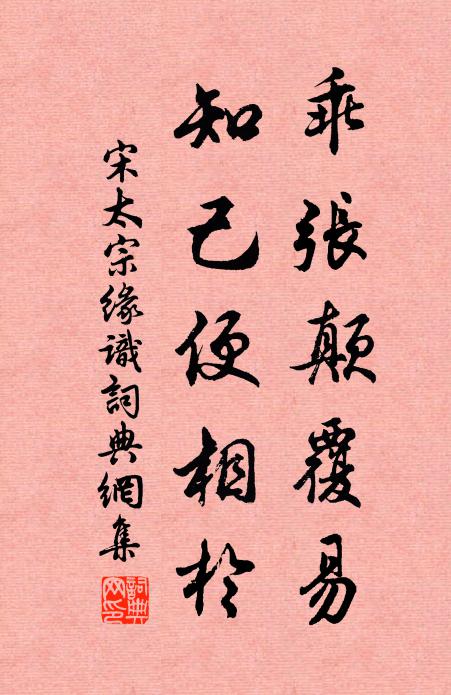 乖張顛覆易
知己便相於
宋太宗緣識詞典網集
詞典
网印